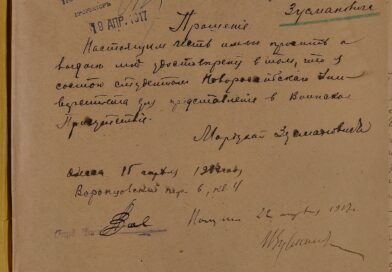 Зусмановича
19 АПР. 1917
Прошение
Настоящим честь имею просить о
выдаче мне удостоверения в том, что я
состою студентом Новороссийского Уни-
верситета для представления в Воинское
Присутствие.
Мордхай Зусманович
Одесса 18 апреля 1917 года
Воронцовский пер. 6, кв 4
22 апреля 1917.